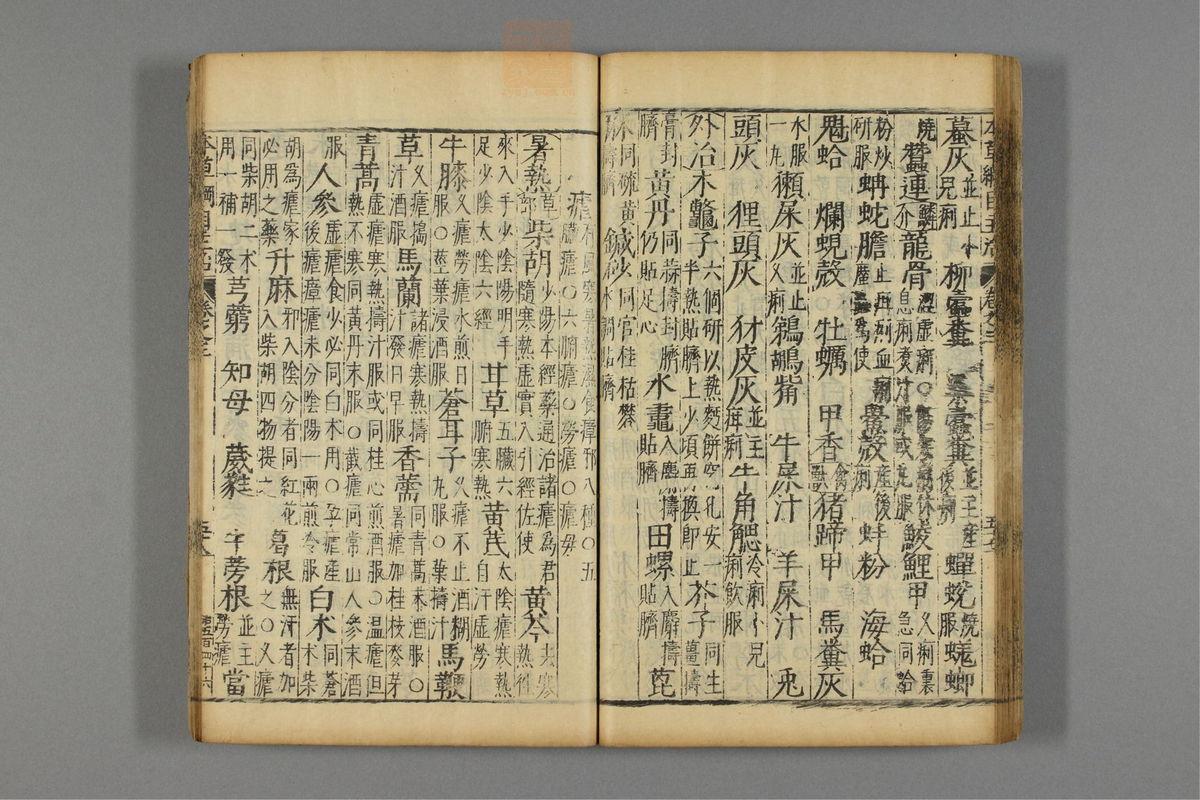 墓灰並止小兒痢 柳蠹糞 桑蠹糞並主產後痢 蟬蛻燒服 蜣蜋
燒 蠶連 龍骨 鯪鯉甲久痢裏急同蛤
粉炒研服 蚺蛇膽止疳痢血痢 鱟殼產後痢 蚌粉 海蛤
魁蛤 爛蜆殼 牡蠣 甲香 禽獸 猪蹄甲 馬糞灰
水服一丸 獺屎灰並止久痢 鵜鶘觜 牛屎汁 羊屎汁 兎
頭灰 狸頭灰 犲皮灰並主疳痢 牛角䚡冷痢小兒痢飲服
外治木鼈子六個研以熱麪餅穴孔安一半熱貼臍上少頃再換即止 芥子同生薑擣
膏封臍 黄丹同蒜擣封臍仍貼足心 水䵷入麝擣貼臍 田螺入麝擣貼臍 蓖
麻同硫黄擣臍 鍼砂同官桂枯礬水調貼臍
瘧有風寒暑熱濕食瘴邪八種○五
臟瘧○六腑瘧○勞瘧○瘧母
暑熱草部柴胡少陽本經藥通治諸瘧為君隨寒熱虛實入引經佐使 黄芩去寒熱往
來入手少陰陽明手少陽足少陰太陰六經 甘草五臟六腑寒熱 黄芪太陰瘧寒熱自汗虛勞
牛膝久瘧勞瘧水煎日服○莖葉浸酒服 蒼耳子久瘧不止酒糊丸服○葉擣汁 馬鞭
草久瘧擣汁酒服 馬蘭諸瘧寒熱擣汁發日早服 香薷同青蒿末酒服○暑瘧加桂枝麥芽
青蒿虛瘧寒熱擣汁服或同桂心煎酒服○温瘧但熱不寒同黄丹末服○截瘧同常山人參末酒
服 人參虛瘧食少必同白术用○孕瘧產後瘧瘴瘧未分陰陽一兩煎冷服 白术同蒼术柴
胡為瘧家必用之藥 升麻邪入陰分者同紅花入柴胡四物提之 葛根無汗者加之○久瘧
同柴胡二术用一補一發 芎藭 知母 葳蕤 牛蒡根並主勞瘧 當